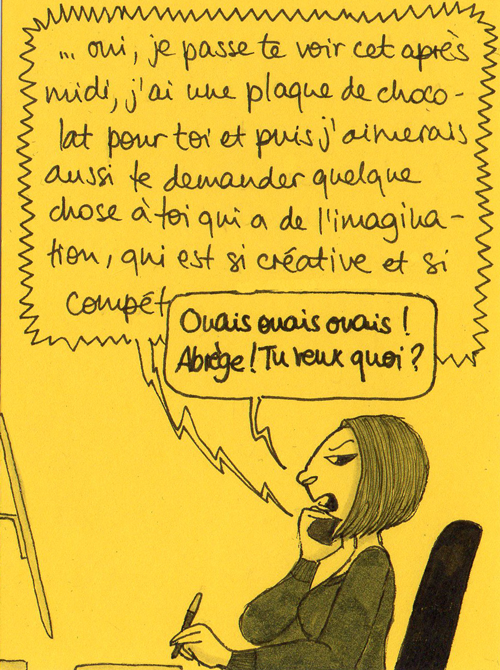 ... oui, je passe te voir cet après
midi, j'ai une plaque de choco-
lat pour toi et puis j'aimerais
aussi te demander quelque
chose à toi qui a de l'imagina-
tion, qui est si créative et si
compét
Ouais ouais ouais !
Abrège ! Tu veux quoi ?